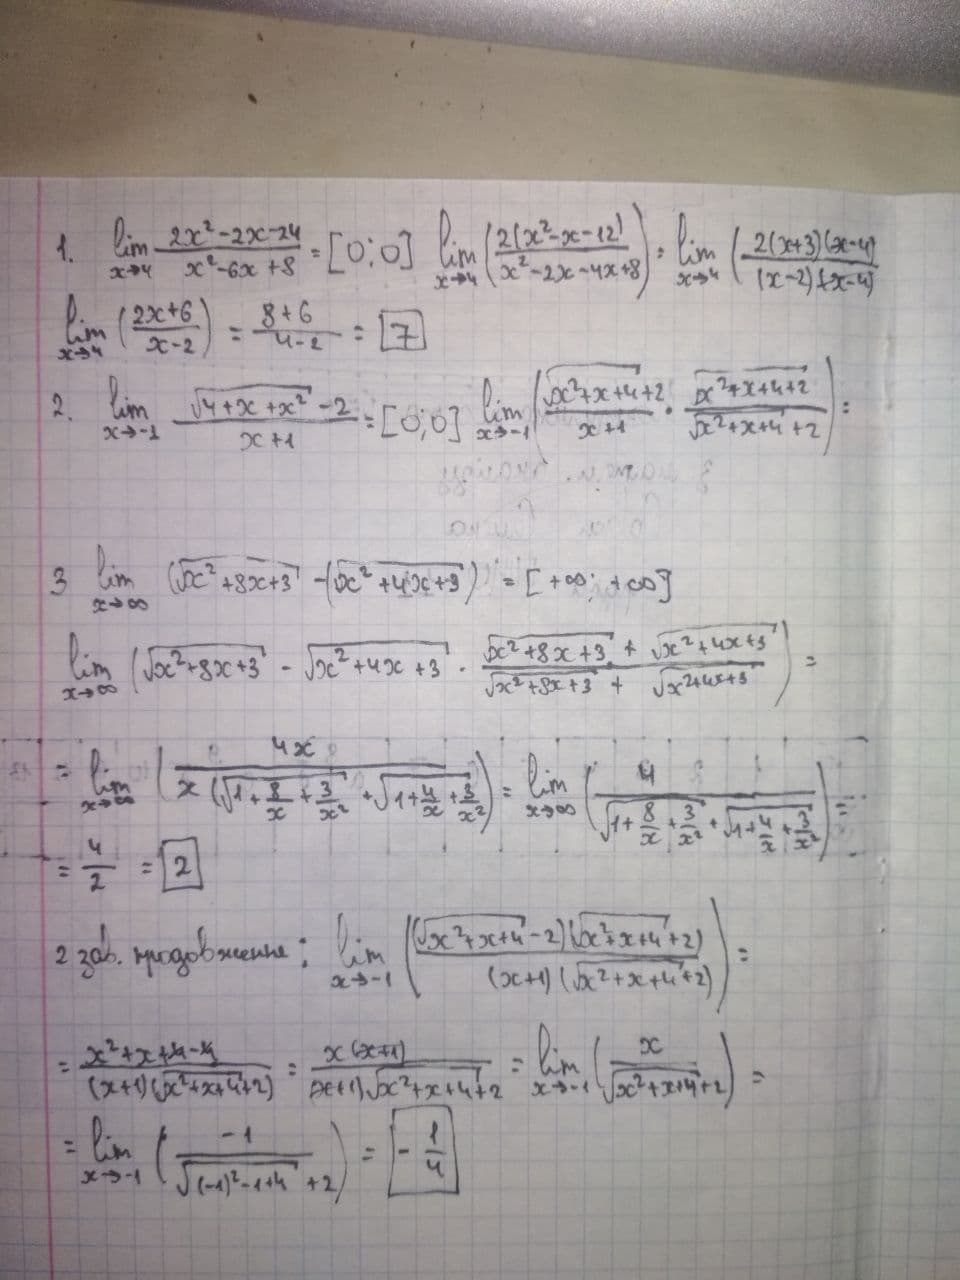 1. lim x→4 (2x²-2x-24)/(x²-6x+8) = [0;0] lim x→4 (2(x²-x-12)/(x²-2x-4x+8)) = lim x→4 (2(x+3)(x-4)/(x-2)(x-4))
lim x→4 ((2x+6)/(x-2)) = (8+6)/(4-2) = 7
2. lim x→-1 (√(4+x+x²) -2)/(x+1) = [0;0] lim x→-1 ((√(x²+x+4)+2)/(x+1) · (√(x²+x+4)+2)/(√(x²+x+4)+2)) =
3 lim x→∞ (√(x²+8x+3) - (√(x²+4x+3)) = [+∞; +∞]
lim x→∞ (√(x²+8x+3) - √(x²+4x+3) · (√(x²+8x+3) + √(x²+4x+3))/(√(x²+8x+3) + √(x²+4x+3))) =
= lim x→∞ (4x/(x(√(1+8/x+3/x²) + √(1+4/x+3/x²))) = lim x→∞ (4/(√(1+8/x+3/x²) + √(1+4/x+3/x²))) =
= 4/2 = 2
2 зав. продовження: lim x→-1 ((√(x²+x+4)-2)(√(x²+x+4)+2)/(x+1)(√(x²+x+4)+2)) =
= (x²+x+4-4)/((x+1)(√(x²+x+4)+2)) = x(x+1)/((x+1)√(x²+x+4)+2) = lim x→-1 (x/(√(x²+x+4)+2)) =
= lim x→-1 (-1/(√((-1)²-1+4) +2)) = -1/4